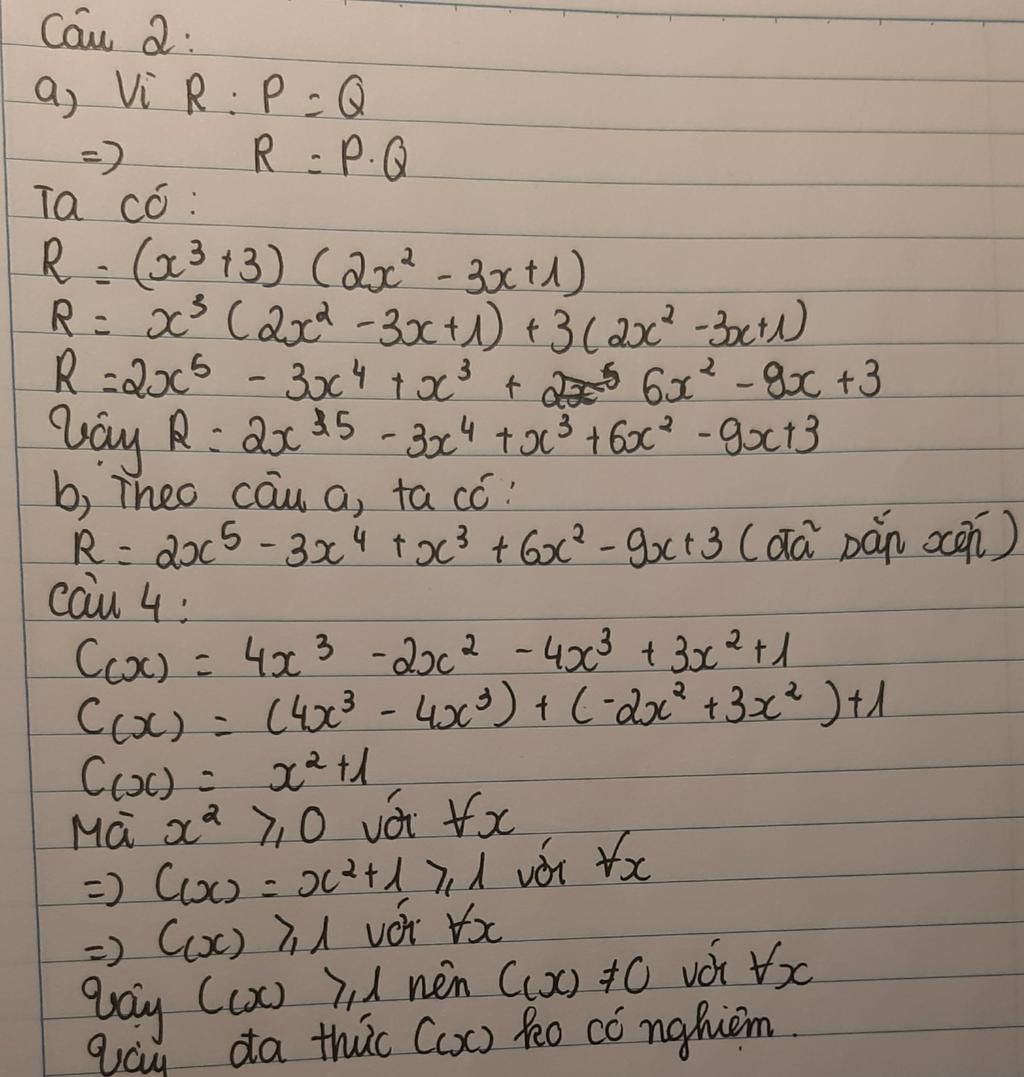 Câu 2:
a, Vì R : P = Q
=> R = P.Q
Ta có:
R = (x³ + 3) (2x² - 3x + 1)
R = x³ (2x² - 3x + 1) + 3(2x² - 3x + 1)
R = 2x⁵ - 3x⁴ + x³ + 6x² - 9x + 3
Vậy R = 2x⁵ - 3x⁴ + x³ + 6x² - 9x + 3
b, Theo câu a, ta có:
R = 2x⁵ - 3x⁴ + x³ + 6x² - 9x + 3 (đã sắp xếp)
Câu 4:
C(x) = 4x³ - 2x² - 4x³ + 3x² + 1
C(x) = (4x³ - 4x³) + (-2x² + 3x²) + 1
C(x) = x² + 1
Mà x² ⩾ 0 với ∀x
=> C(x) = x² + 1 ⩾ 1 với ∀x
=> C(x) ⩾ 1 với ∀x
Vậy C(x) ⩾ 1 nên C(x) ≠ 0 với ∀x
Vậy đa thức C(x) ko có nghiệm.